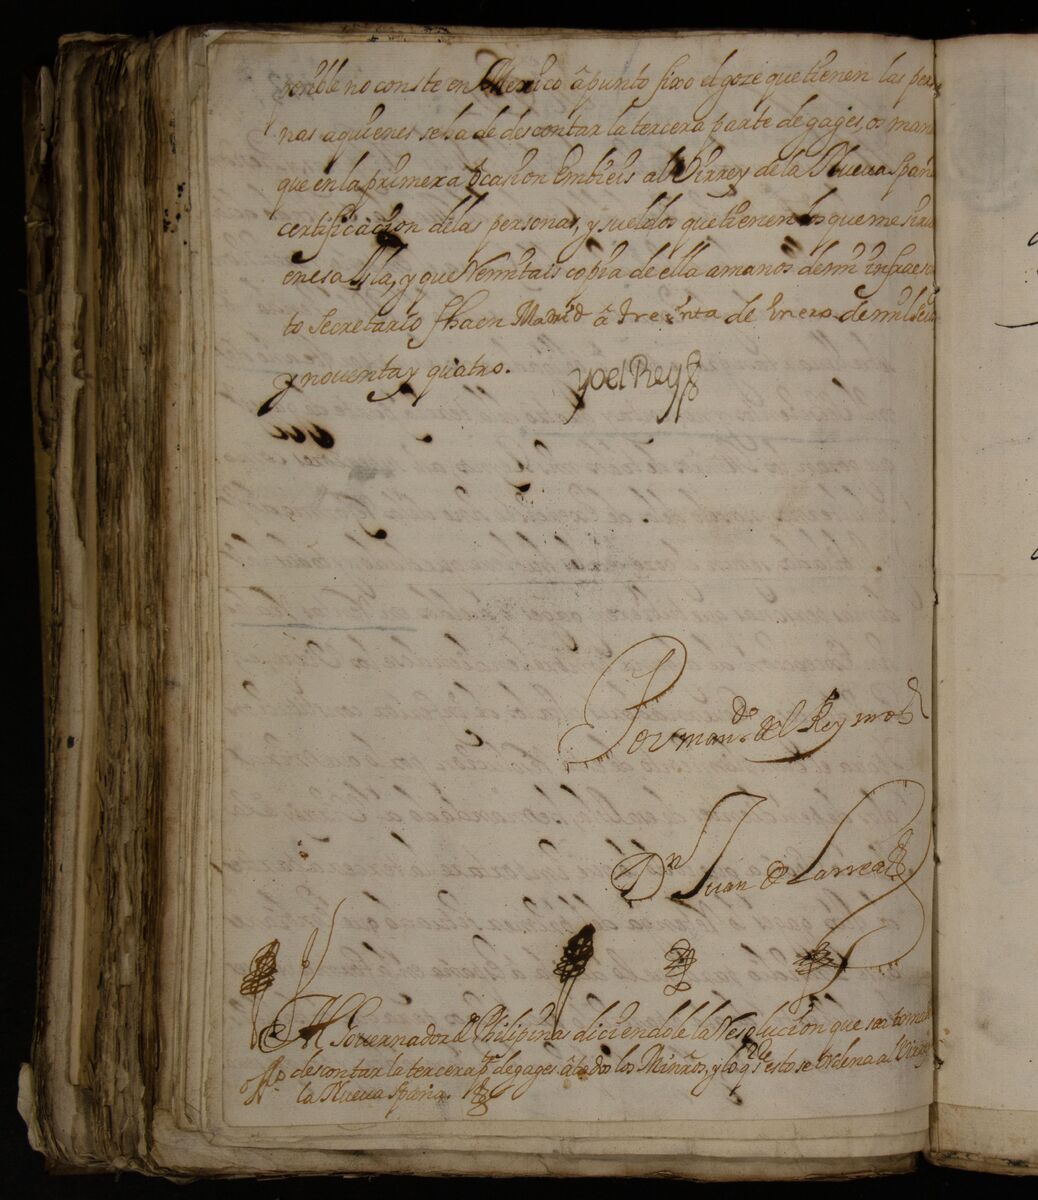 no conste en Mexico â punto fixo el goze que tienen las pers
nas a quienes se ha de descontar la tercera parte de gages, os man
que en la primera ôcasion Embieis al Virrey de la Nueva Spañ
certificacion delas personas, y sueldos que tienen los que me sirv
en esa Ysla, y que Remitais copia de ella a manos de mi infraes
to secretario fha en Madrid â treinta de Enero de mill seis
y noventa y quatro.
yo el Rey
Por mando. del Rey nro S.
Dn Juan de Larrea
Al Governador de Philipinas diciendole la Resolucion que se ha tomado
descontar la tercera pte. de gages â todos los Minros, y lo q sre esto se ordena al Virrey
la Nueva Spaña.